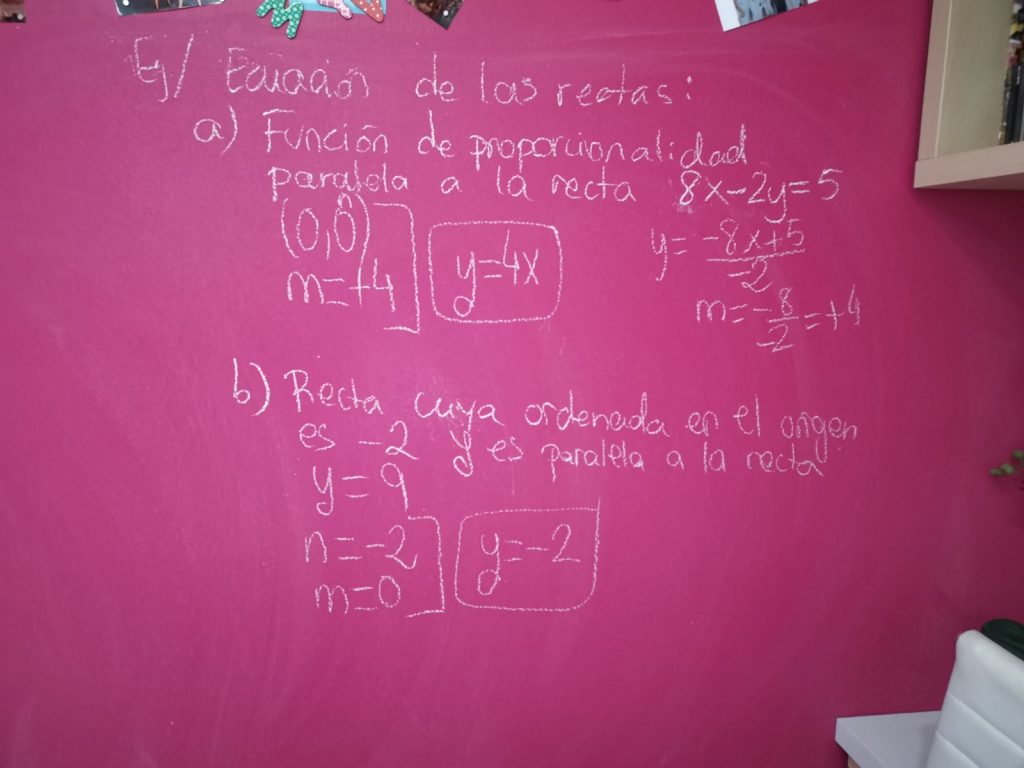 Ej/ Ecuación de las rectas:
a) Función de proporcionalidad
paralela a la recta 8x-2y=5
(0,0)
m=+4
y=4x
y= -8x+5 / -2
m= -8 / -2 =+4
b) Recta cuya ordenada en el origen
es -2 y es paralela a la recta
y=9
n=-2
m=0
y=-2